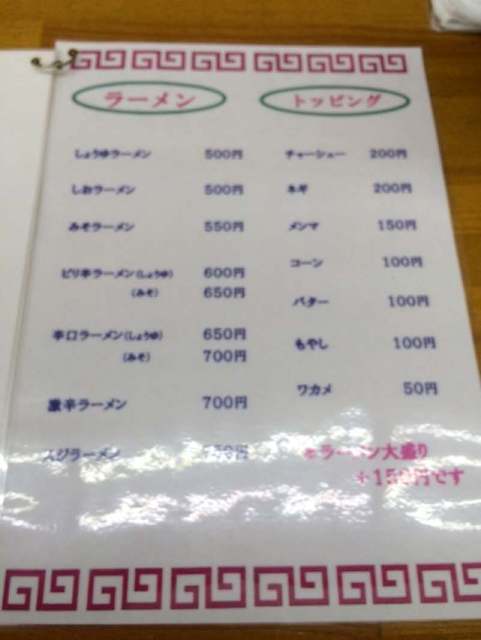 ラーメン
しょうゆラーメン 500円
しおラーメン 500円
みそラーメン 550円
ピリ辛ラーメン(しょうゆ) 600円
(みそ) 650円
辛口ラーメン(しょうゆ) 650円
(みそ) 700円
激辛ラーメン 700円
ラーメン
トッピング
チャーシュー 200円
ネギ 200円
メンマ 150円
コーン 100円
バター 100円
もやし 100円
ワカメ 50円
※ラーメン大盛り
+150円です